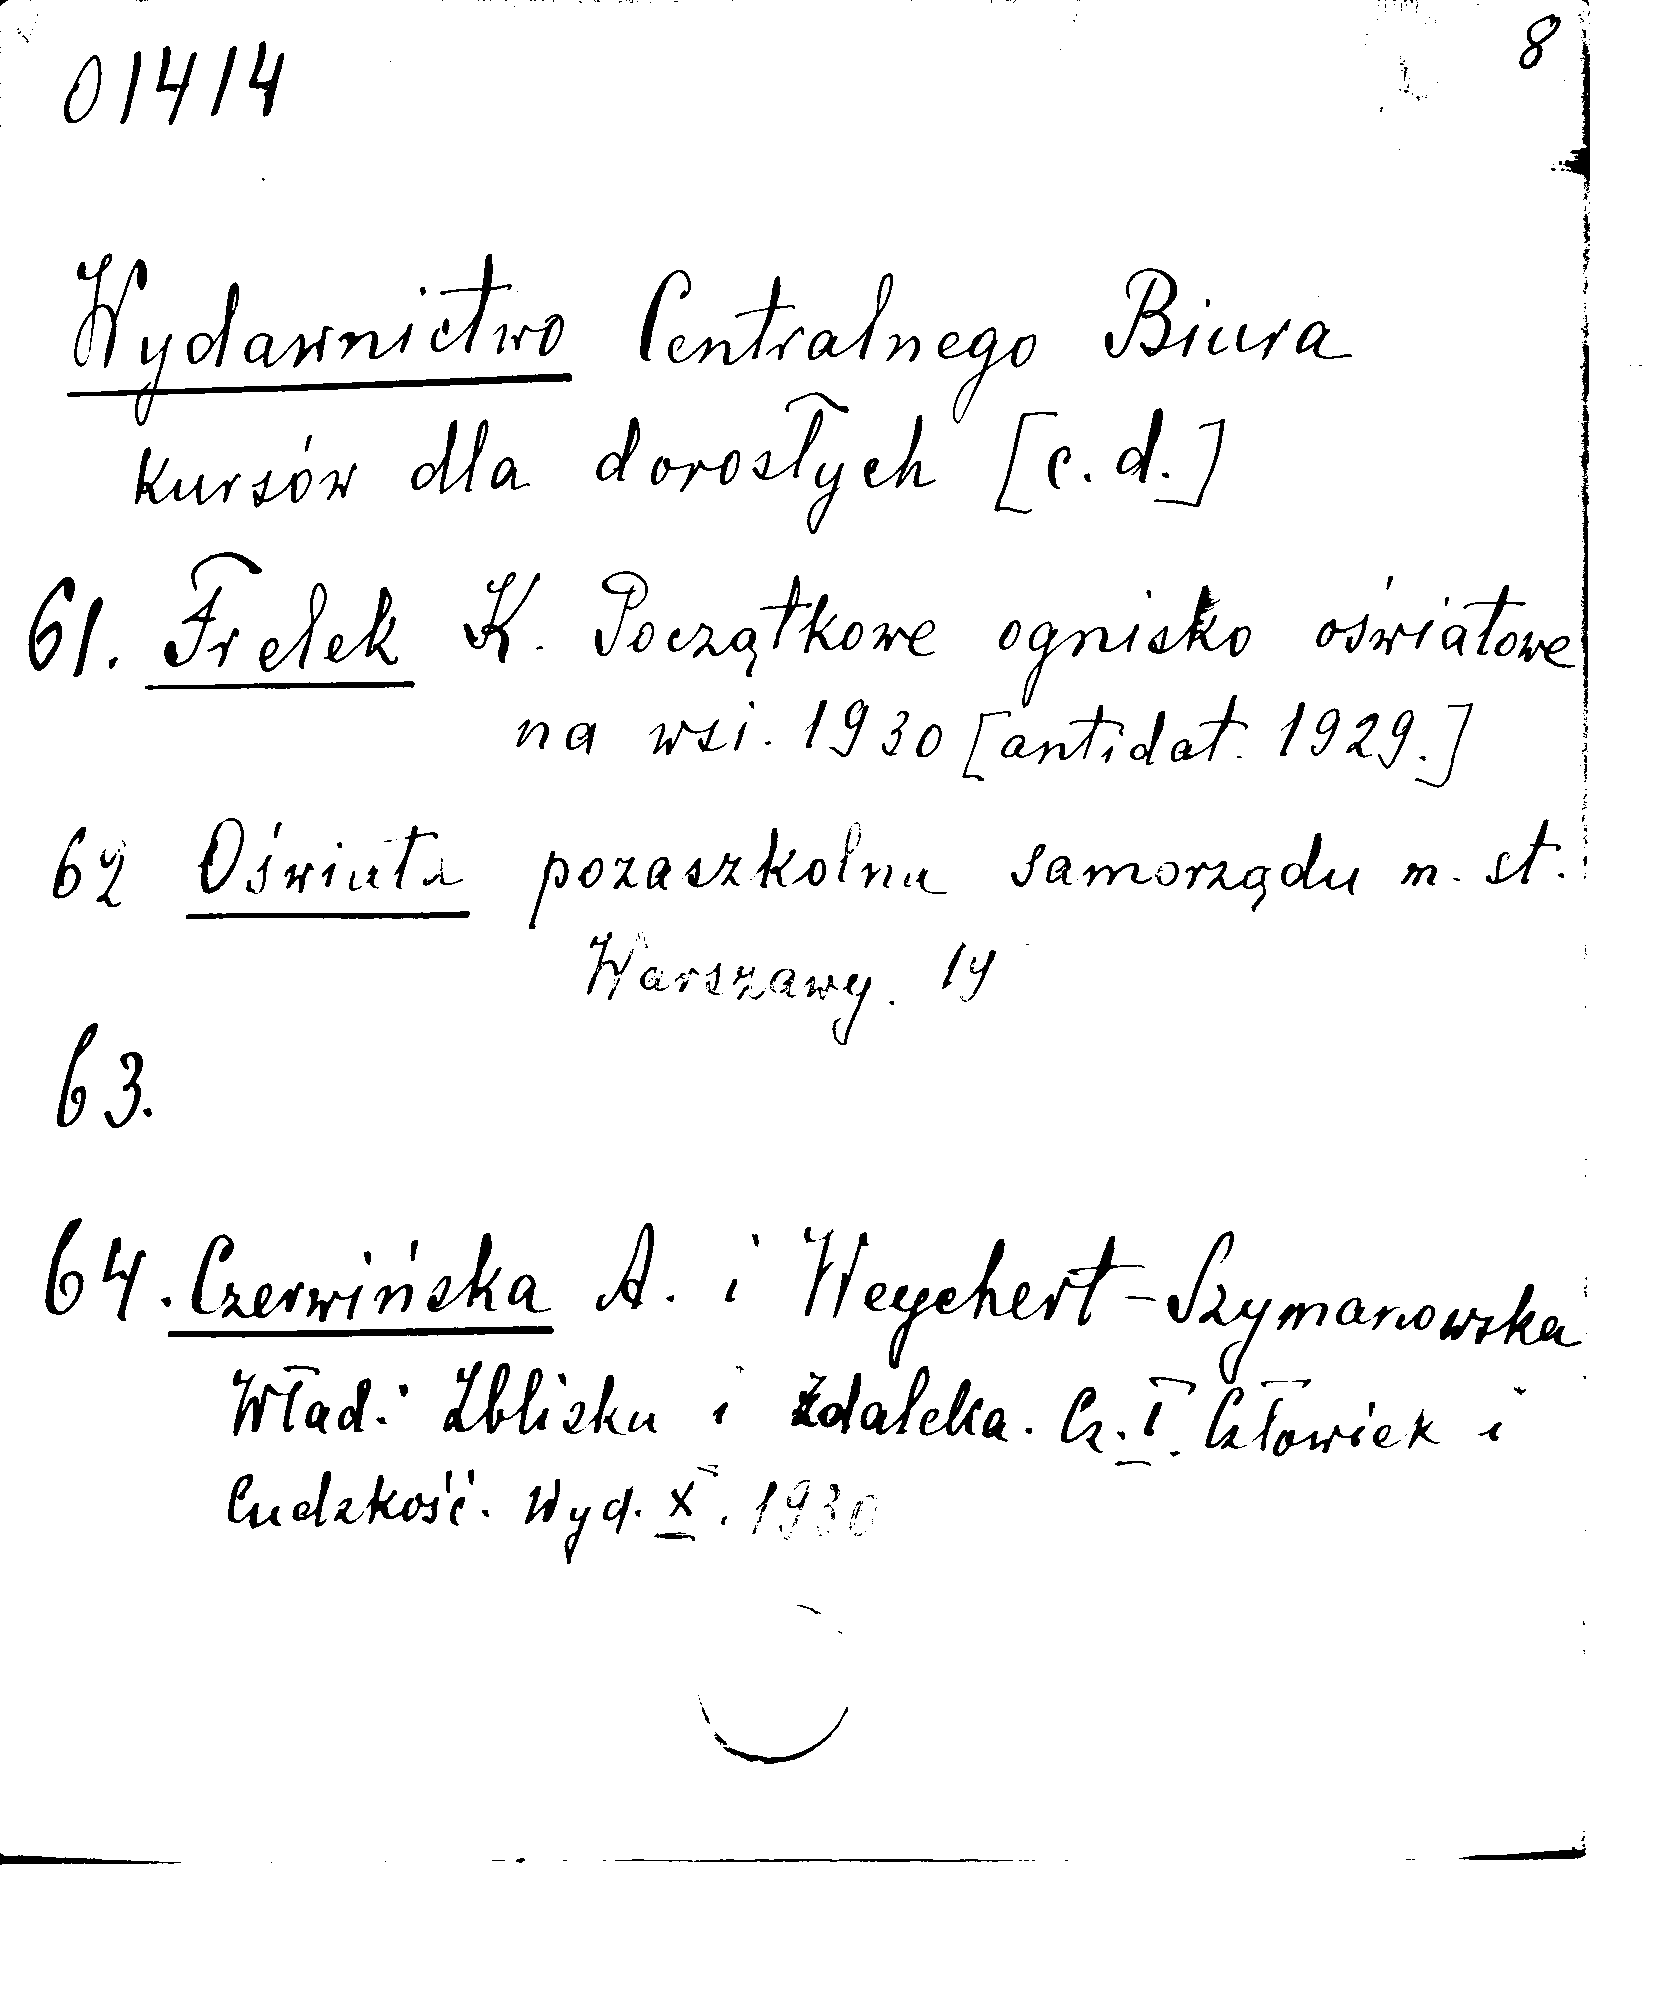 01414 8
Wydawnictwo Centralnego Biura
kursów dla dorosłych [c.d.]
61. Frelek K. Początkowe ognisko oświatowe
na wsi. 1930 [antidat. 1929.]
62 Oświata pozaszkolna samorządu m. st.
Warszawy. 19
63.
64. Czerwińska A. i Weychert-Szymanowska
Wład. Zbliska i zdaleka. Cz. I. Człowiek i
ludzkość. Wyd. X. 1930